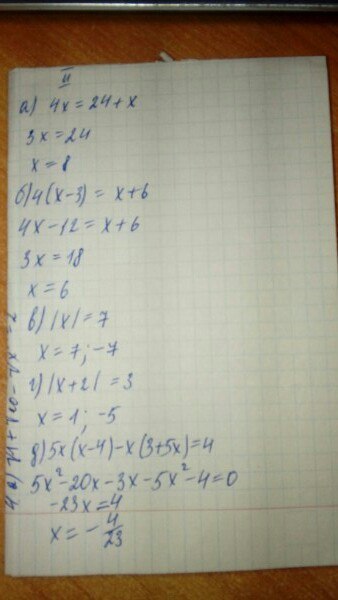 II
а) 4x = 24 + x
3x = 24
x = 8
б) 4(x-3) = x+6
4x - 12 = x + 6
3x = 18
x = 6
в) |x| = 7
x = 7; -7
г) |x+2| = 3
x = 1; -5
д) 5x(x-4) - x(3+5x) = 4
5x² - 20x - 3x - 5x² - 4 = 0
-23x = 4
x = - 4/23